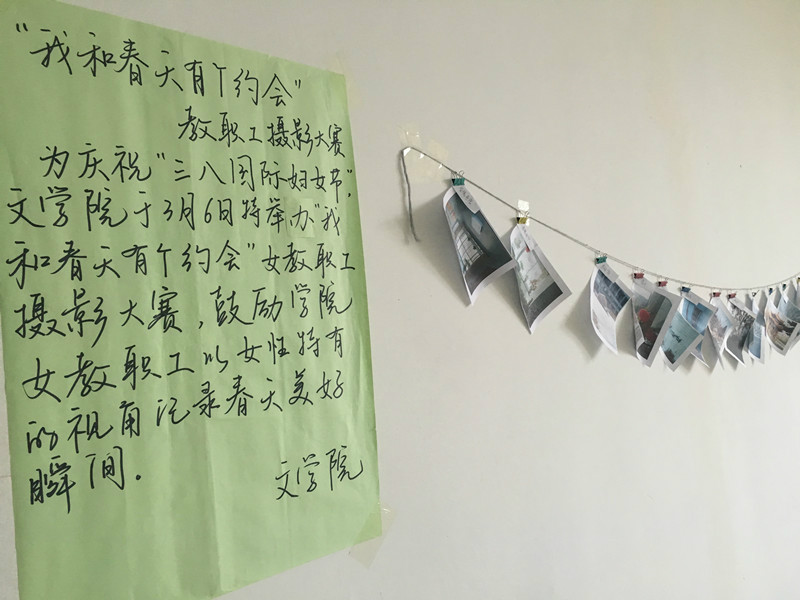 “我和春天有个约会”
教职工摄影大赛
为庆祝“三八国际妇女节”,
文学院于3月6日特举办“我
和春天有个约会”女教职工
摄影大赛,鼓励学院
女教职工以女性特有
的视角记录春天美好
瞬间.
文学院